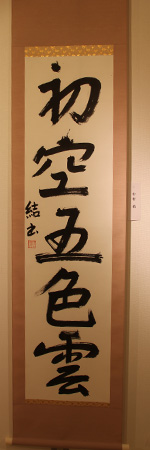 初空五色雲
結出